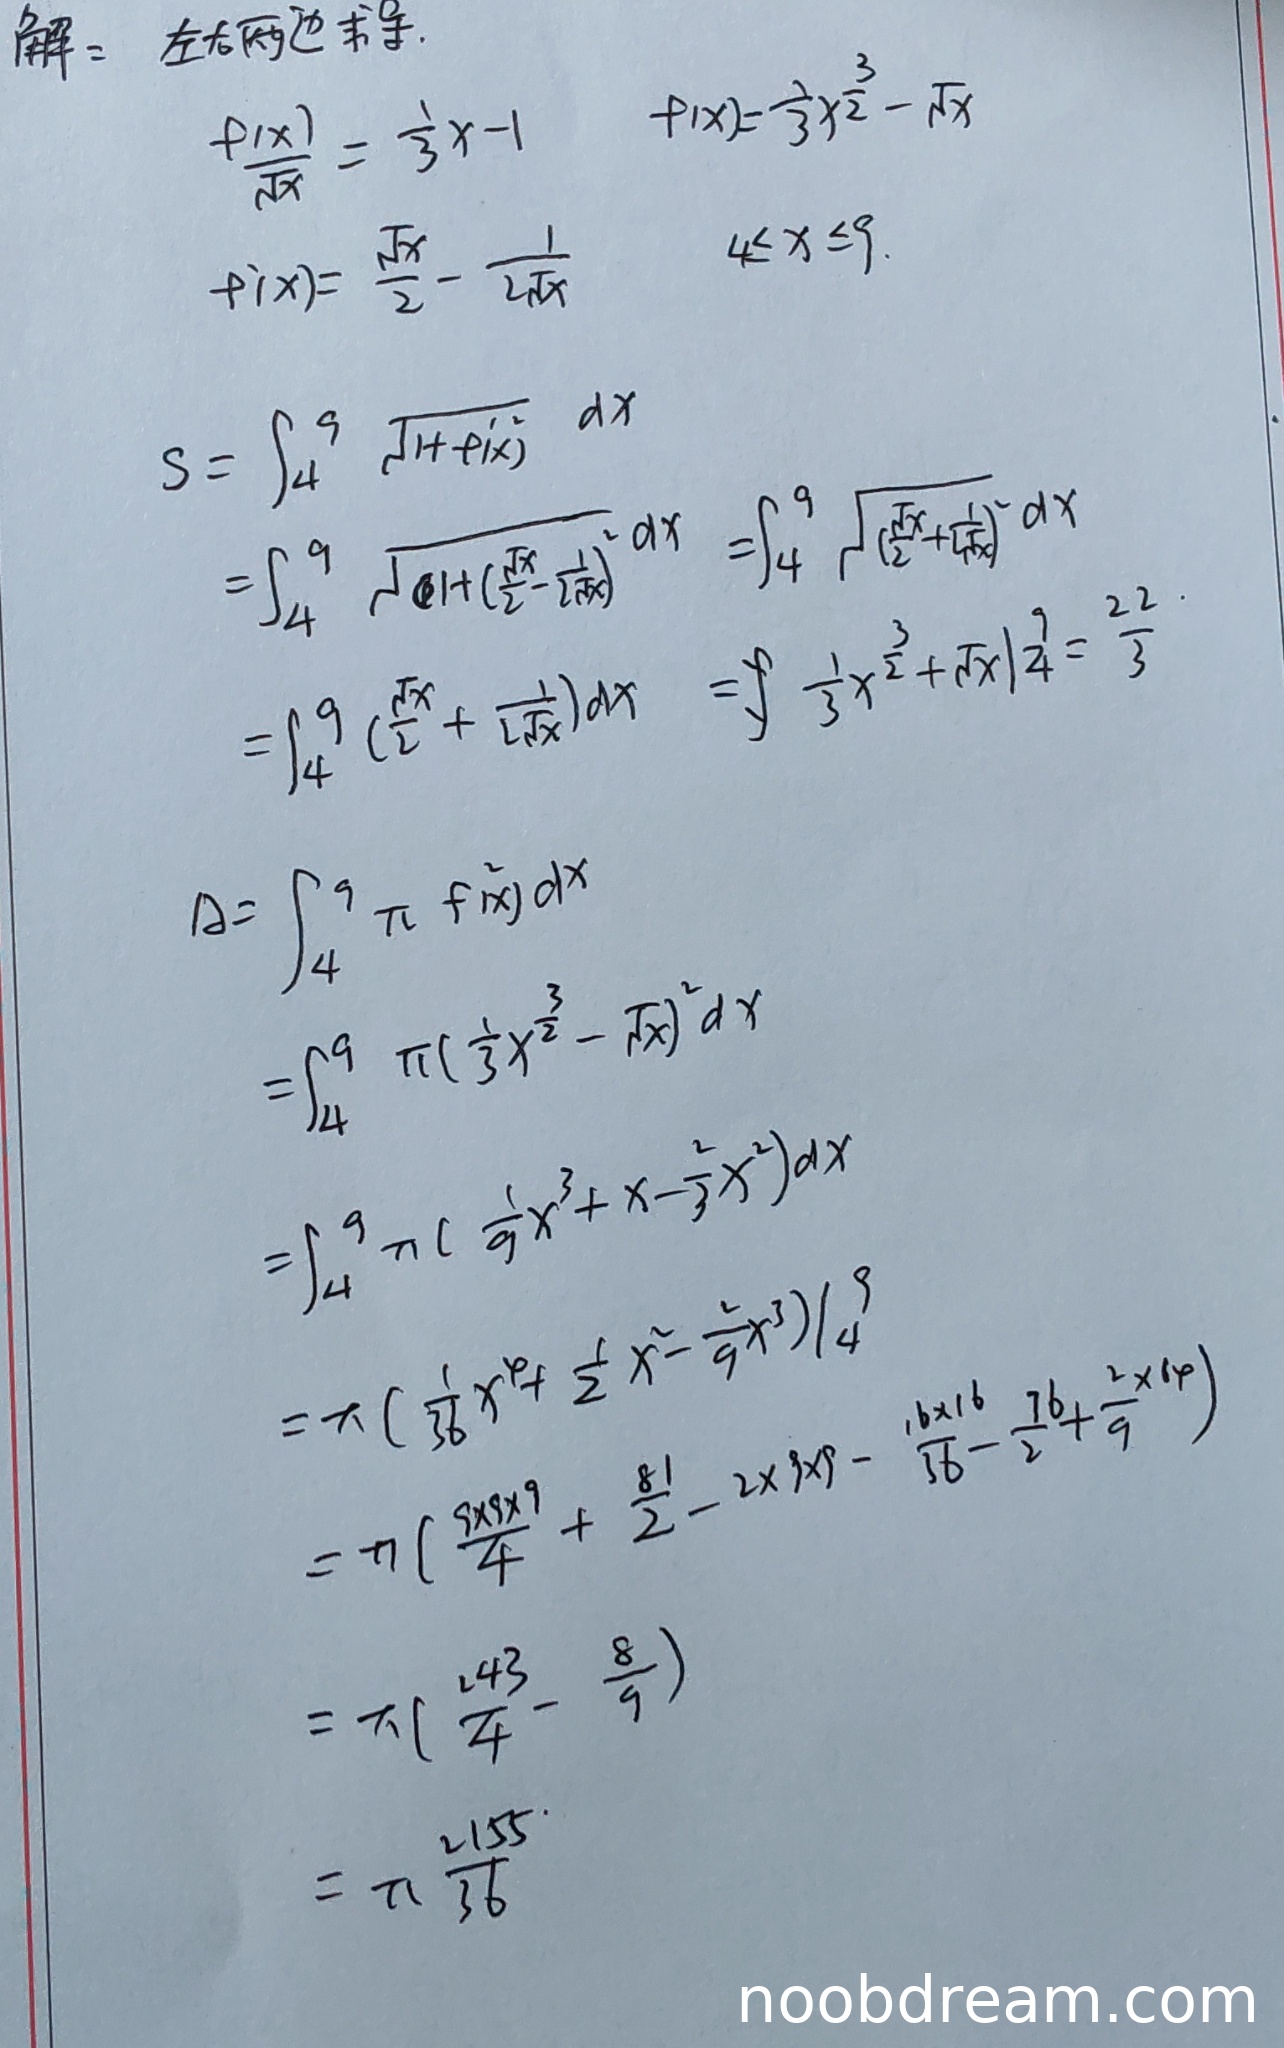 解: 左右两边求导.
f(x)/√x = 1/3 x - 1    f(x) = 1/3 x^(3/2) - √x
f'(x) = √x/2 - 1/(2√x)    4 ≤ x ≤ 9.
S = ∫_4^9 √(1+f'(x)²) dx
= ∫_4^9 √(1+(√x/2 - 1/(2√x))²) dx = ∫_4^9 √((√x/2 + 1/(2√x))²) dx
= ∫_4^9 (√x/2 + 1/(2√x)) dx = 1/3 x^(3/2) + √x |_4^9 = 22/3.
A = ∫_4^9 π f²(x) dx
= ∫_4^9 π(1/3 x^(3/2) - √x)² dx
= ∫_4^9 π(1/9 x³ + x - 2/3 x²) dx
= π(1/36 x⁴ + 1/2 x² - 2/9 x³)|_4^9
= π(9×9×9/4 + 81/2 - 2×9×9 - 16×16/36 - 16/2 + 2×64/9)
= π(243/4 - 8/9)
= π 2155/36
noobdream.com